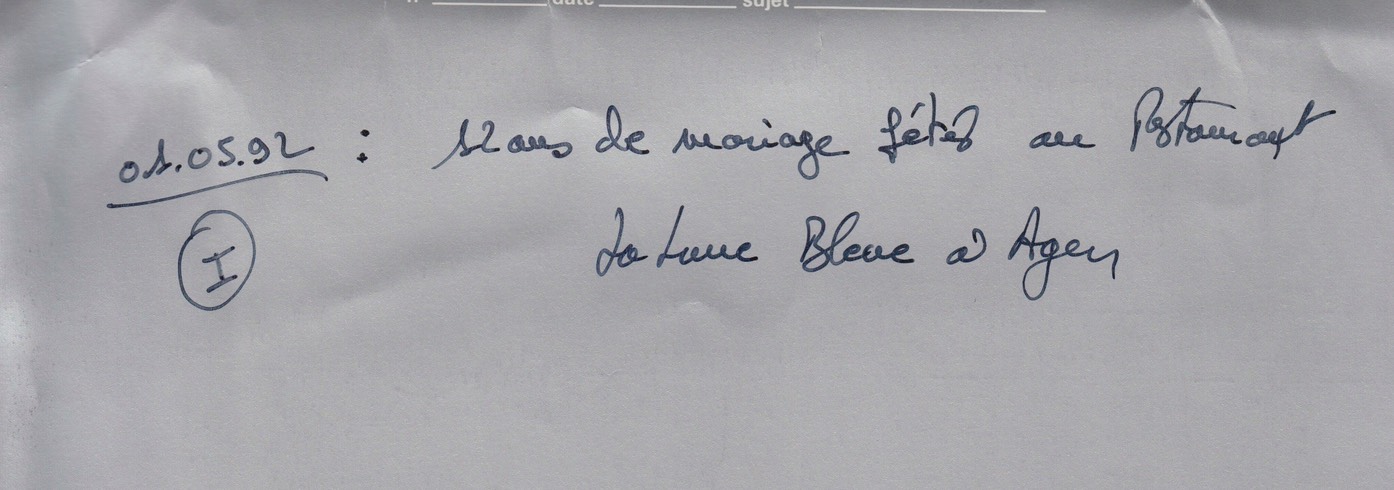 n° date sujet
01.05.92 : 12 ans de mariage fêtés au Restaurant
La Lune Bleue à Agen
I